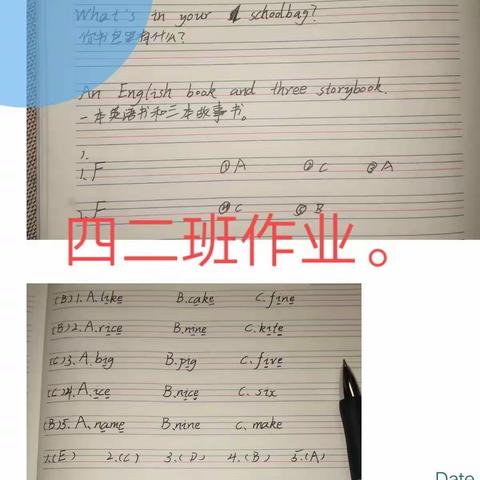 What's in your schoolbag?
你书包里有什么?
An English book and three storybook.
一本英语书和三本故事书。
1.
1. F ①A ②C ③A
2. F ④C ⑤B
四二班作业。
(B)1. A. like B. cake C. fine
(B)2. A. rice B. nine C. kite
(C)3. A. big B. pig C. five
(C)4. A. ice B. nice C. six
(B)5. A. name B. nine C. make
1.(E) 2.(C) 3.(D) 4.(B) 5.(A)
Date